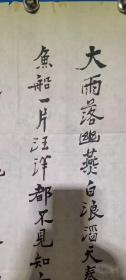 大雨落幽燕白浪滔天秦
魚船一片汪洋都不見知